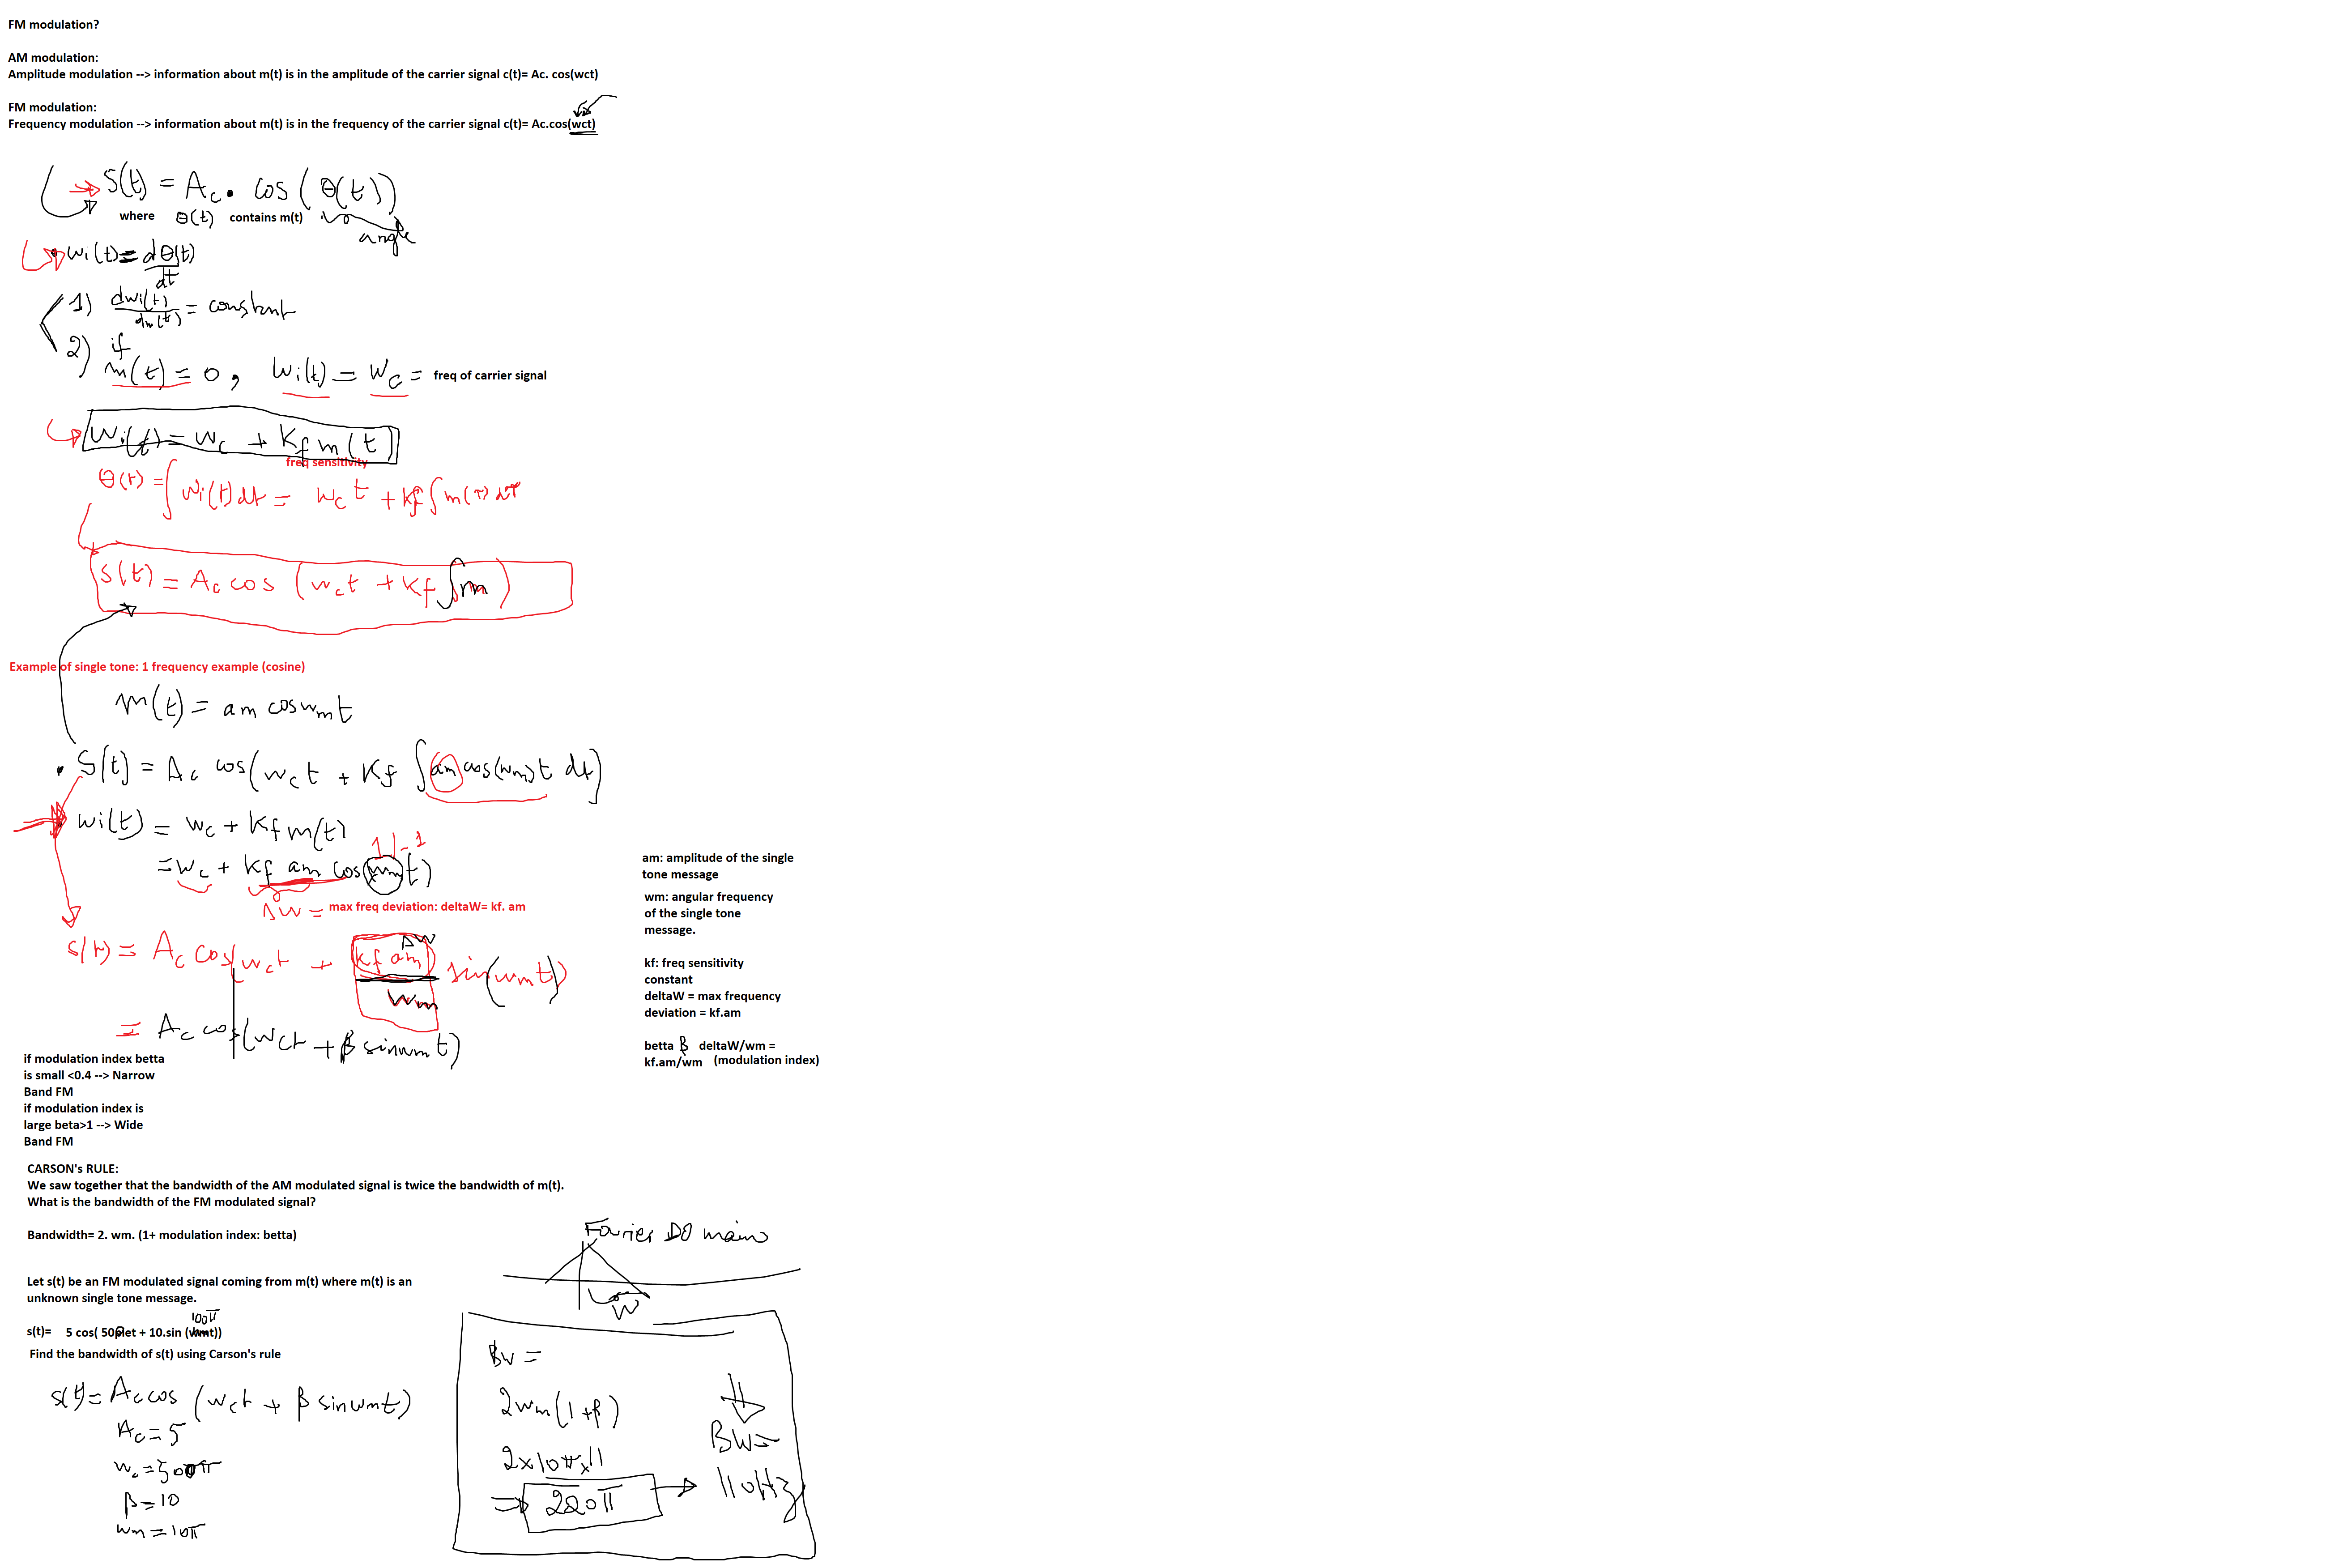 FM modulation?
AM modulation:
Amplitude modulation --> information about m(t) is in the amplitude of the carrier signal c(t)= Ac. cos(wct)
FM modulation:
Frequency modulation --> information about m(t) is in the frequency of the carrier signal c(t)= Ac.cos(wct)
S(t) = Ac . cos ( θ(t) )
where θ(t) contains m(t)
angle
wi(t) = dθ(t)/dt
1) dwi(t)/dm(t) = constant
2) if
m(t) = 0 , wi(t) = wc = freq of carrier signal
wi(t) = wc + Kf m(t)
freq sensitivity
θ(t) = ∫ wi(t) dt = wc t + Kf ∫ m(τ) dτ
s(t) = Ac cos (wct + Kf ∫m )
Example of single tone: 1 frequency example (cosine)
m(t) = am coswmt
S(t) = Ac cos(wct + Kf ∫ am cos(wm)t dt)
wi(t) = wc + Kf m(t)
= wc + Kf am cos(wmt)
ΔW = max freq deviation: deltaW= kf. am
s(t) = Ac cos(wct + kf am/wm sin(wmt))
ΔW
= Ac cos(wct + β sinwmt)
am: amplitude of the single
tone message
wm: angular frequency
of the single tone
message.
kf: freq sensitivity
constant
deltaW = max frequency
deviation = kf.am
betta β deltaW/wm =
kf.am/wm (modulation index)
if modulation index betta
is small <0.4 --> Narrow
Band FM
if modulation index is
large beta>1 --> Wide
Band FM
CARSON's RULE:
We saw together that the bandwidth of the AM modulated signal is twice the bandwidth of m(t).
What is the bandwidth of the FM modulated signal?
Bandwidth= 2. wm. (1+ modulation index: betta)
Fourier DOmain
W
Let s(t) be an FM modulated signal coming from m(t) where m(t) is an
unknown single tone message.
100π
s(t)= 5 cos( 500πt + 10.sin (wmt))
Find the bandwidth of s(t) using Carson's rule
s(t) = Ac cos (wct + β sinwmt)
Ac = 5
wc = 500π
β = 10
wm = 10π
BW =
2wm(1+β)
2x10πx11
=> 220π
BW=
110Hz